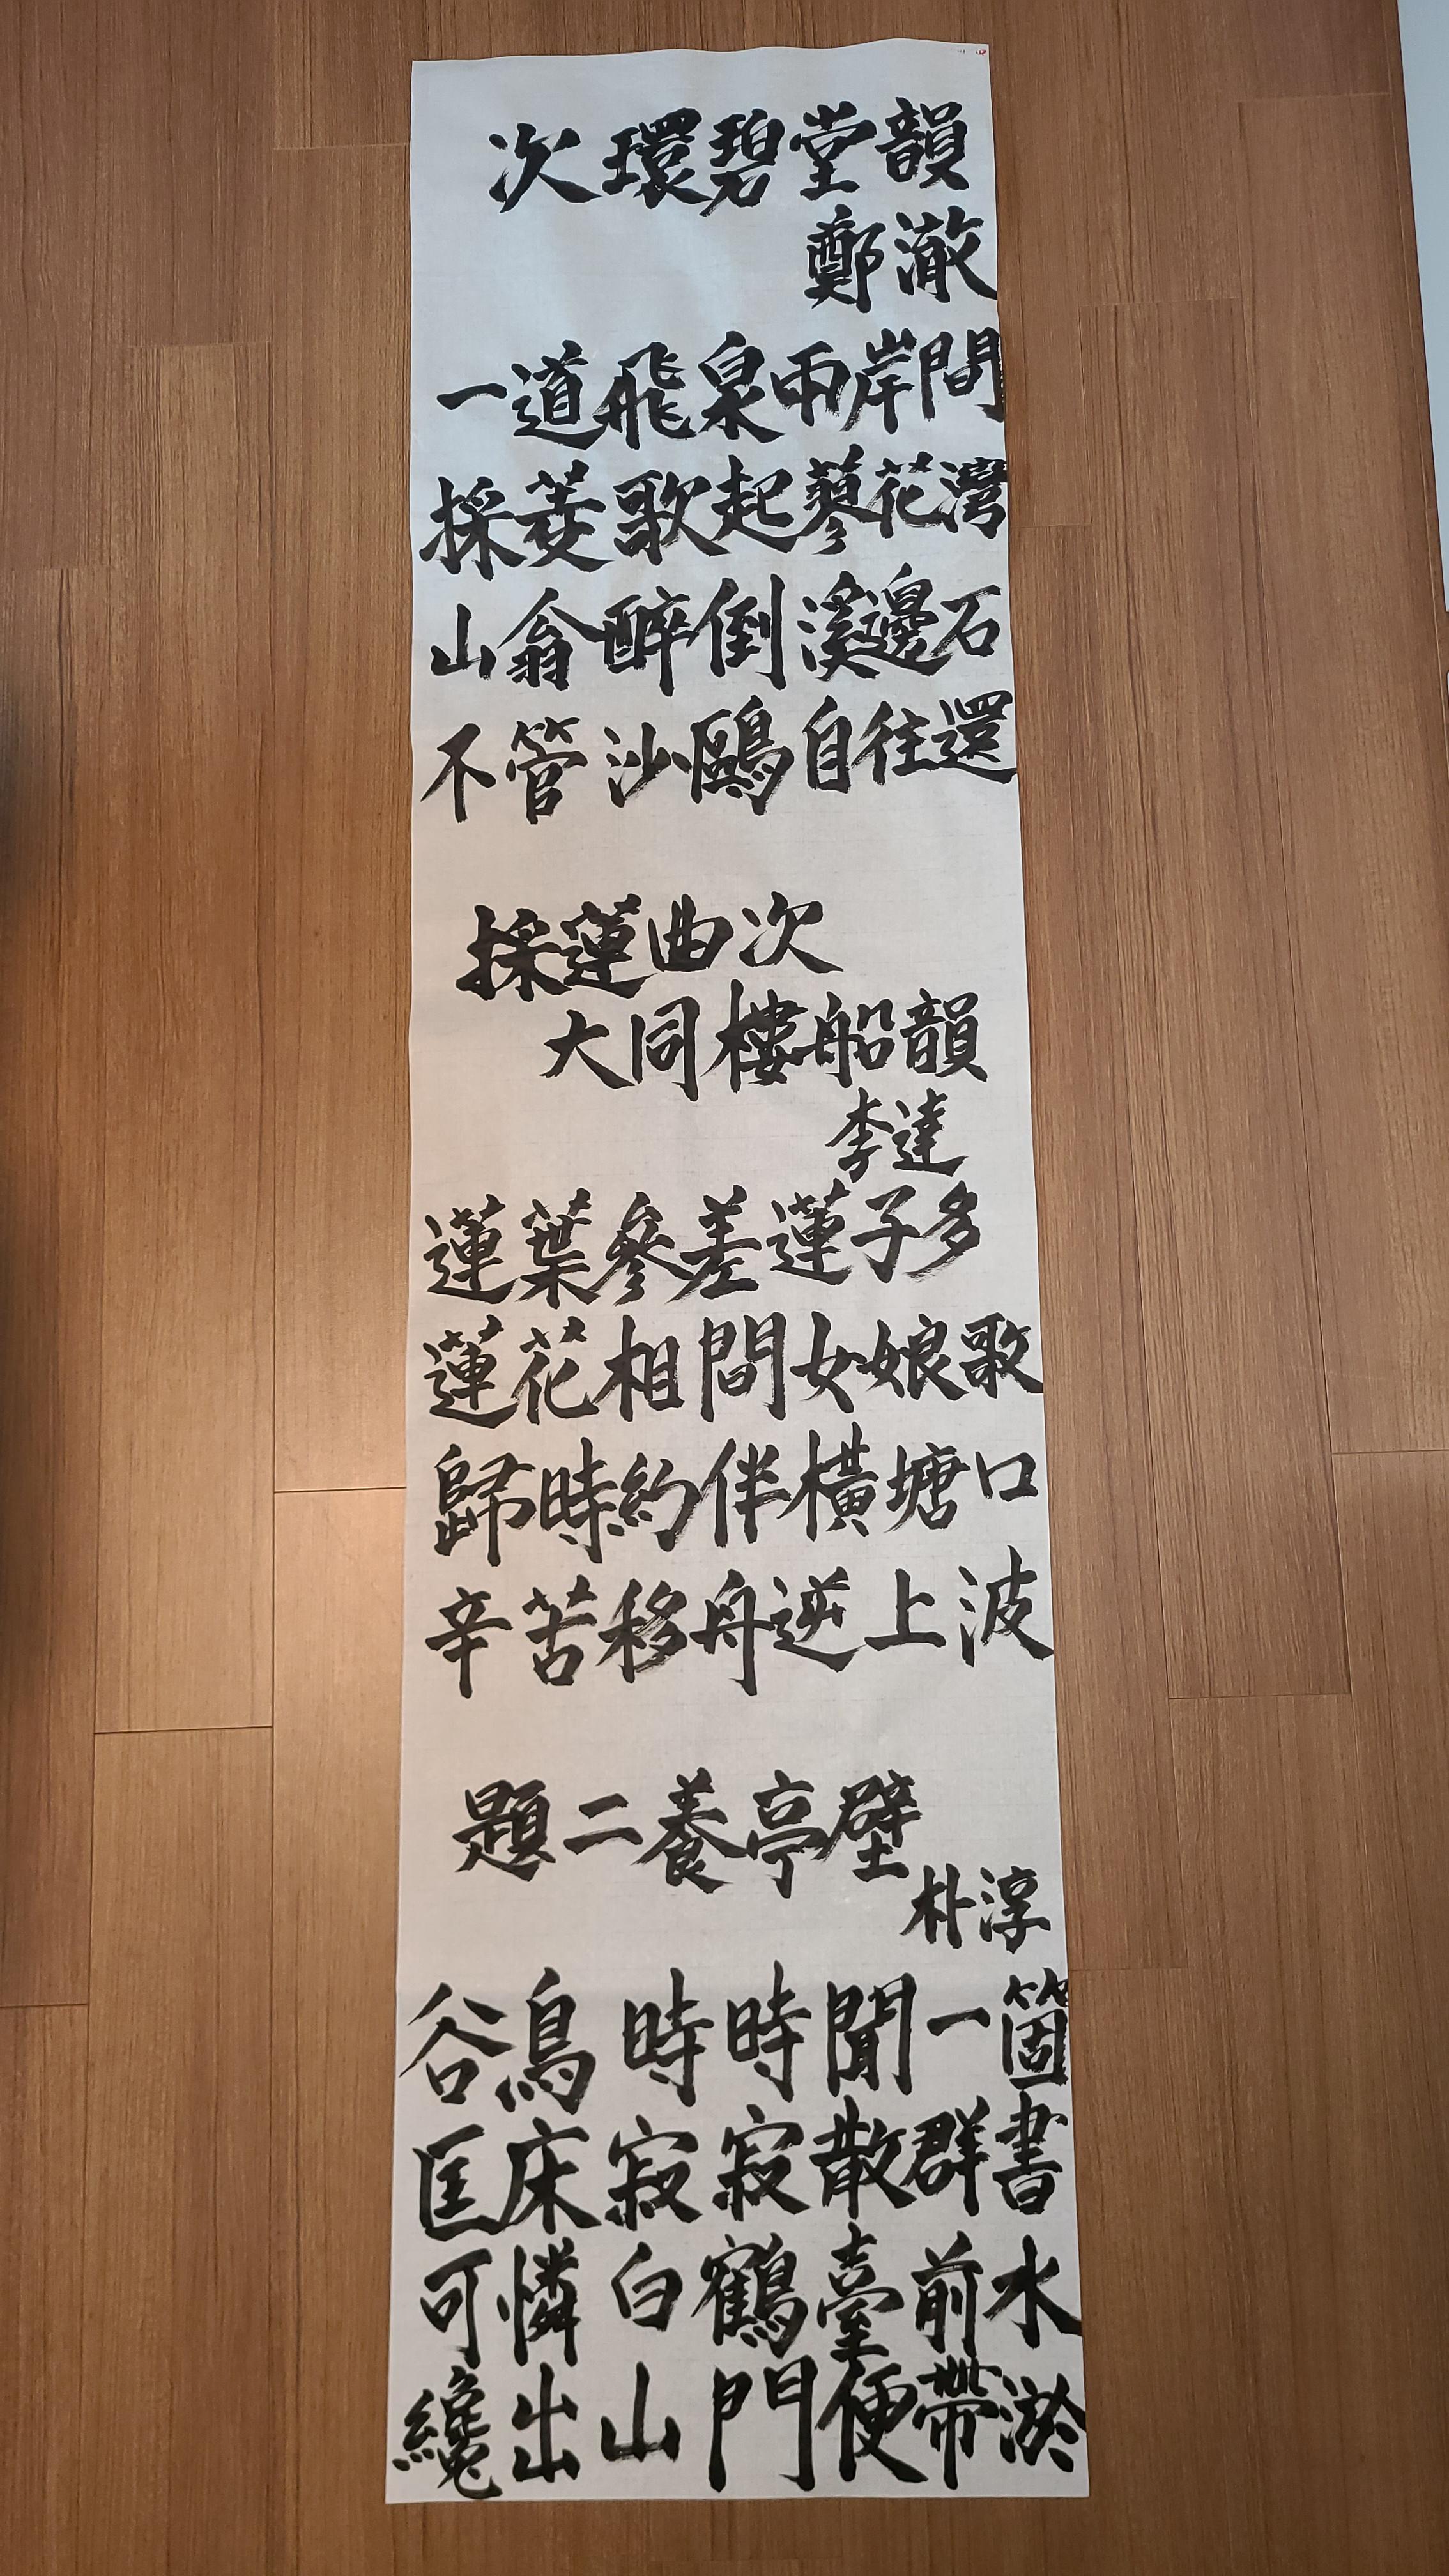 次環碧堂韻
鄭澈
一道飛泉兩岸間
採菱歌起蓼花灣
山翁醉倒溪邊石
不管沙鷗自往還
採蓮曲次
大同樓船韻
李達
蓮葉參差蓮子多
蓮花相間女娘歌
歸時約伴橫塘口
辛苦移舟逆上波
題二養亭壁
朴淳
谷鳥時時聞一箇
匡床寂寂散群書
可憐白鶴臺前水
纔出山門便帶淤